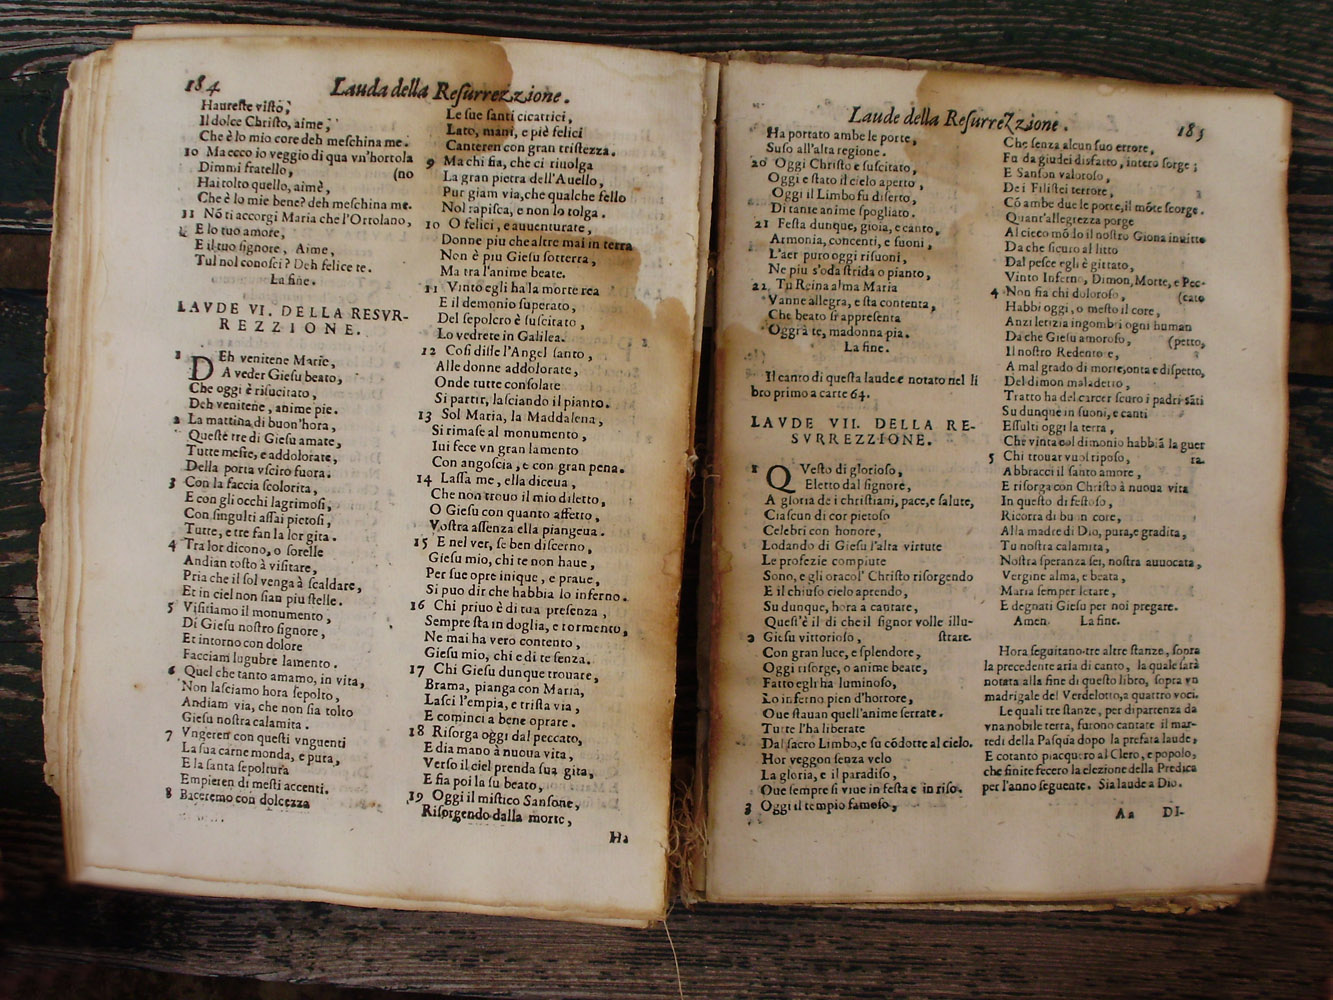 184
Lauda della Resurrezzione.
Haureste visto,
Il dolce Christo, aime,
Che è lo mio core deh meschina me.
10 Ma ecco io veggio di qua vn'hortola
Dimmi fratello, (no
Hai tolto quello, aimè,
Che è lo mie bene? deh meschina me.
11 Nō ti accorgi Maria che l'Ortolano,
E lo tuo amore,
E il tuo signore, Aime,
Tul nol conosci? Deh felice te.
La fine.
LAVDE VI. DELLA RESVR-
REZZIONE.
1 DEh venitene Marie,
A veder Giesu beato,
Che oggi è risucitato,
Deh venitene, anime pie.
2 La mattina di buon'hora,
Queste tre di Giesu amate,
Tutte meste, e addolorate,
Della porta vsciro fuora.
3 Con la faccia scolorita,
E con gli occhi lagrimosi,
Con singulti assai pietosi,
Tutte, e tre fan la lor gita.
4 Tra lor dicono, o sorelle
Andian tosto à visitare,
Pria che il sol venga à scaldare,
Et in ciel non sian piu stelle.
5 Visitiamo il monumento,
Di Giesu nostro signore,
Et intorno con dolore
Facciam lugubre lamento.
6 Quel che tanto amamo, in vita,
Non lasciamo hora sepolto,
Andiam via, che non sia tolto
Giesu nostra calamita.
7 Vngeren con questi vnguenti
La sua carne monda, e pura,
E la santa sepoltura
Empieren di mesti accenti.
8 Baceremo con dolcezza
Le sue santi cicatrici,
Lato, mani, e piè felici
Canteren con gran tristezza.
9 Ma chi fia, che ci riuolga
La gran pietra dell'Auello,
Pur giam via, che qualche fello
Nol rapisca, e non lo tolga.
10 O felici, e auuenturate,
Donne piu che altre mai in terra
Non è piu Giesu sotterra,
Ma tra l'anime beate.
11 Vinto egli ha la morte rea
E il demonio superato,
Del sepolcro è suscitato,
Lo vedrete in Galilea.
12 Cosi disse l'Angel santo,
Alle donne addolorate,
Onde tutte consolate
Si partir, lasciando il pianto.
13 Sol Maria, la Maddalena,
Si rimase al monumento,
Iui fece vn gran lamento
Con angoscia, e con gran pena.
14 Lassa me, ella diceua,
Che non trouo il mio diletto,
O Giesu con quanto affetto,
Vostra assenza ella piangeua.
15 E nel ver, se ben discerno,
Giesu mio, chi te non haue,
Per sue opre inique, e praue,
Si puo dir che habbia lo inferno.
16 Chi priuo è di tua presenza,
Sempre sta in doglia, e tormento,
Ne mai ha vero contento,
Giesu mio, chi e di te senza.
17 Chi Giesu dunque trouare,
Brama, pianga con Maria,
Lasci l'empia, e trista via,
E cominci a bene oprare.
18 Risorga oggi dal peccato,
E dia mano à nuoua vita,
Verso il ciel prenda sua gita,
E fia poi la su beato,
19 Oggi il mistico Sansone,
Risorgendo dalla morte,
Ha
Laude della Resurrezzione.
185
Ha portato ambe le porte,
Suso all'alta regione.
20 Oggi Christo e suscitato,
Oggi e stato il cielo aperto,
Oggi il Limbo fu diserto,
Di tante anime spogliato.
21 Festa dunque, gioia, e canto,
Armonia, concenti, e suoni,
L'aer puro oggi risuoni,
Ne piu s'oda strida o pianto,
22 Tu Reina alma Maria
Vanne allegra, e sta contenta,
Che beato si appresenta
Oggi à te, madonna pia.
La fine.
Il canto di questa laude e notato nel li
bro primo a carte 64.
LAVDE VII. DELLA RE-
SVRREZZIONE.
1 QVesto di glorioso,
Eletto dal signore,
A gloria de i christiani, pace, e salute,
Ciascun di cor pietoso
Celebri con honore,
Lodando di Giesu l'alta virtute
Le profezie compiute
Sono, e gli oracol' Christo risorgendo
E il chiuso cielo aprendo,
Su dunque, hora a cantare,
Quest'è il di che il signor volle illu-
2 Giesu vittorioso, strare.
Con gran luce, e splendore,
Oggi risorge, o anime beate,
Fatto egli ha luminoso,
Lo inferno pien d'horrore,
Oue stauan quell'anime serrate.
Tutte l'ha liberate
Dal sacro Limbo, e su cōdotte al cielo.
Hor veggon senza velo
La gloria, e il paradiso,
Oue sempre si viue in festa e in riso.
3 Oggi il tempio famoso,
Che senza alcun suo errore,
Fu da giudei disfatto, intero sorge;
E Sanson valoroso,
De i Filistei terrore,
Cō ambe due le porte, il mōte scorge.
Quant'allegrezza porge
Al cieco mōdo il nostro Giona inuitto
Da che sicuro al litto
Dal pesce egli è gittato,
Vinto Inferno, Dimon, Morte, e Pec-
4 Non fia chi doloroso, (cato
Habbi oggi, o mesto il core,
Anzi letizia ingombri ogni human
Da che Giesu amoroso, (petto,
Il nostro Redentore,
A mal grado di morte, onta e dispetto,
Del dimon maladetto,
Tratto ha del carcer scuro i padri sāti
Su dunque in suoni, e canti
Essulti oggi la terra,
Che vinta col dimonio habbiā la guer
5 Chi trouar vuol riposo, ra.
Abbracci il santo amore,
E risorga con Christo à nuoua vita
In questo di festoso,
Ricorra di buon core,
Alla madre di Dio, pura, e gradita,
Tu nostra calamita,
Nostra speranza sei, nostra auuocata,
Vergine alma, e beata,
Maria semper letare,
E degnati Giesu per noi pregare.
Amen. La fine.
Hora seguitano tre altre stanze, sopra
la precedente aria di canto, la quale sarà
notata alla fine di questo libro, sopra vn
madrigale del Verdelotto, a quattro voci.
Le quali tre stanze, per dipartenza da
vna nobile terra, furono cantate il mar-
tedi della Pasqua dopo la prefata laude,
E cotanto piacquero al Clero, e popolo,
che finite fecero la elezione della Predica
per l'anno seguente. Sia laude a Dio.
Aa DI-